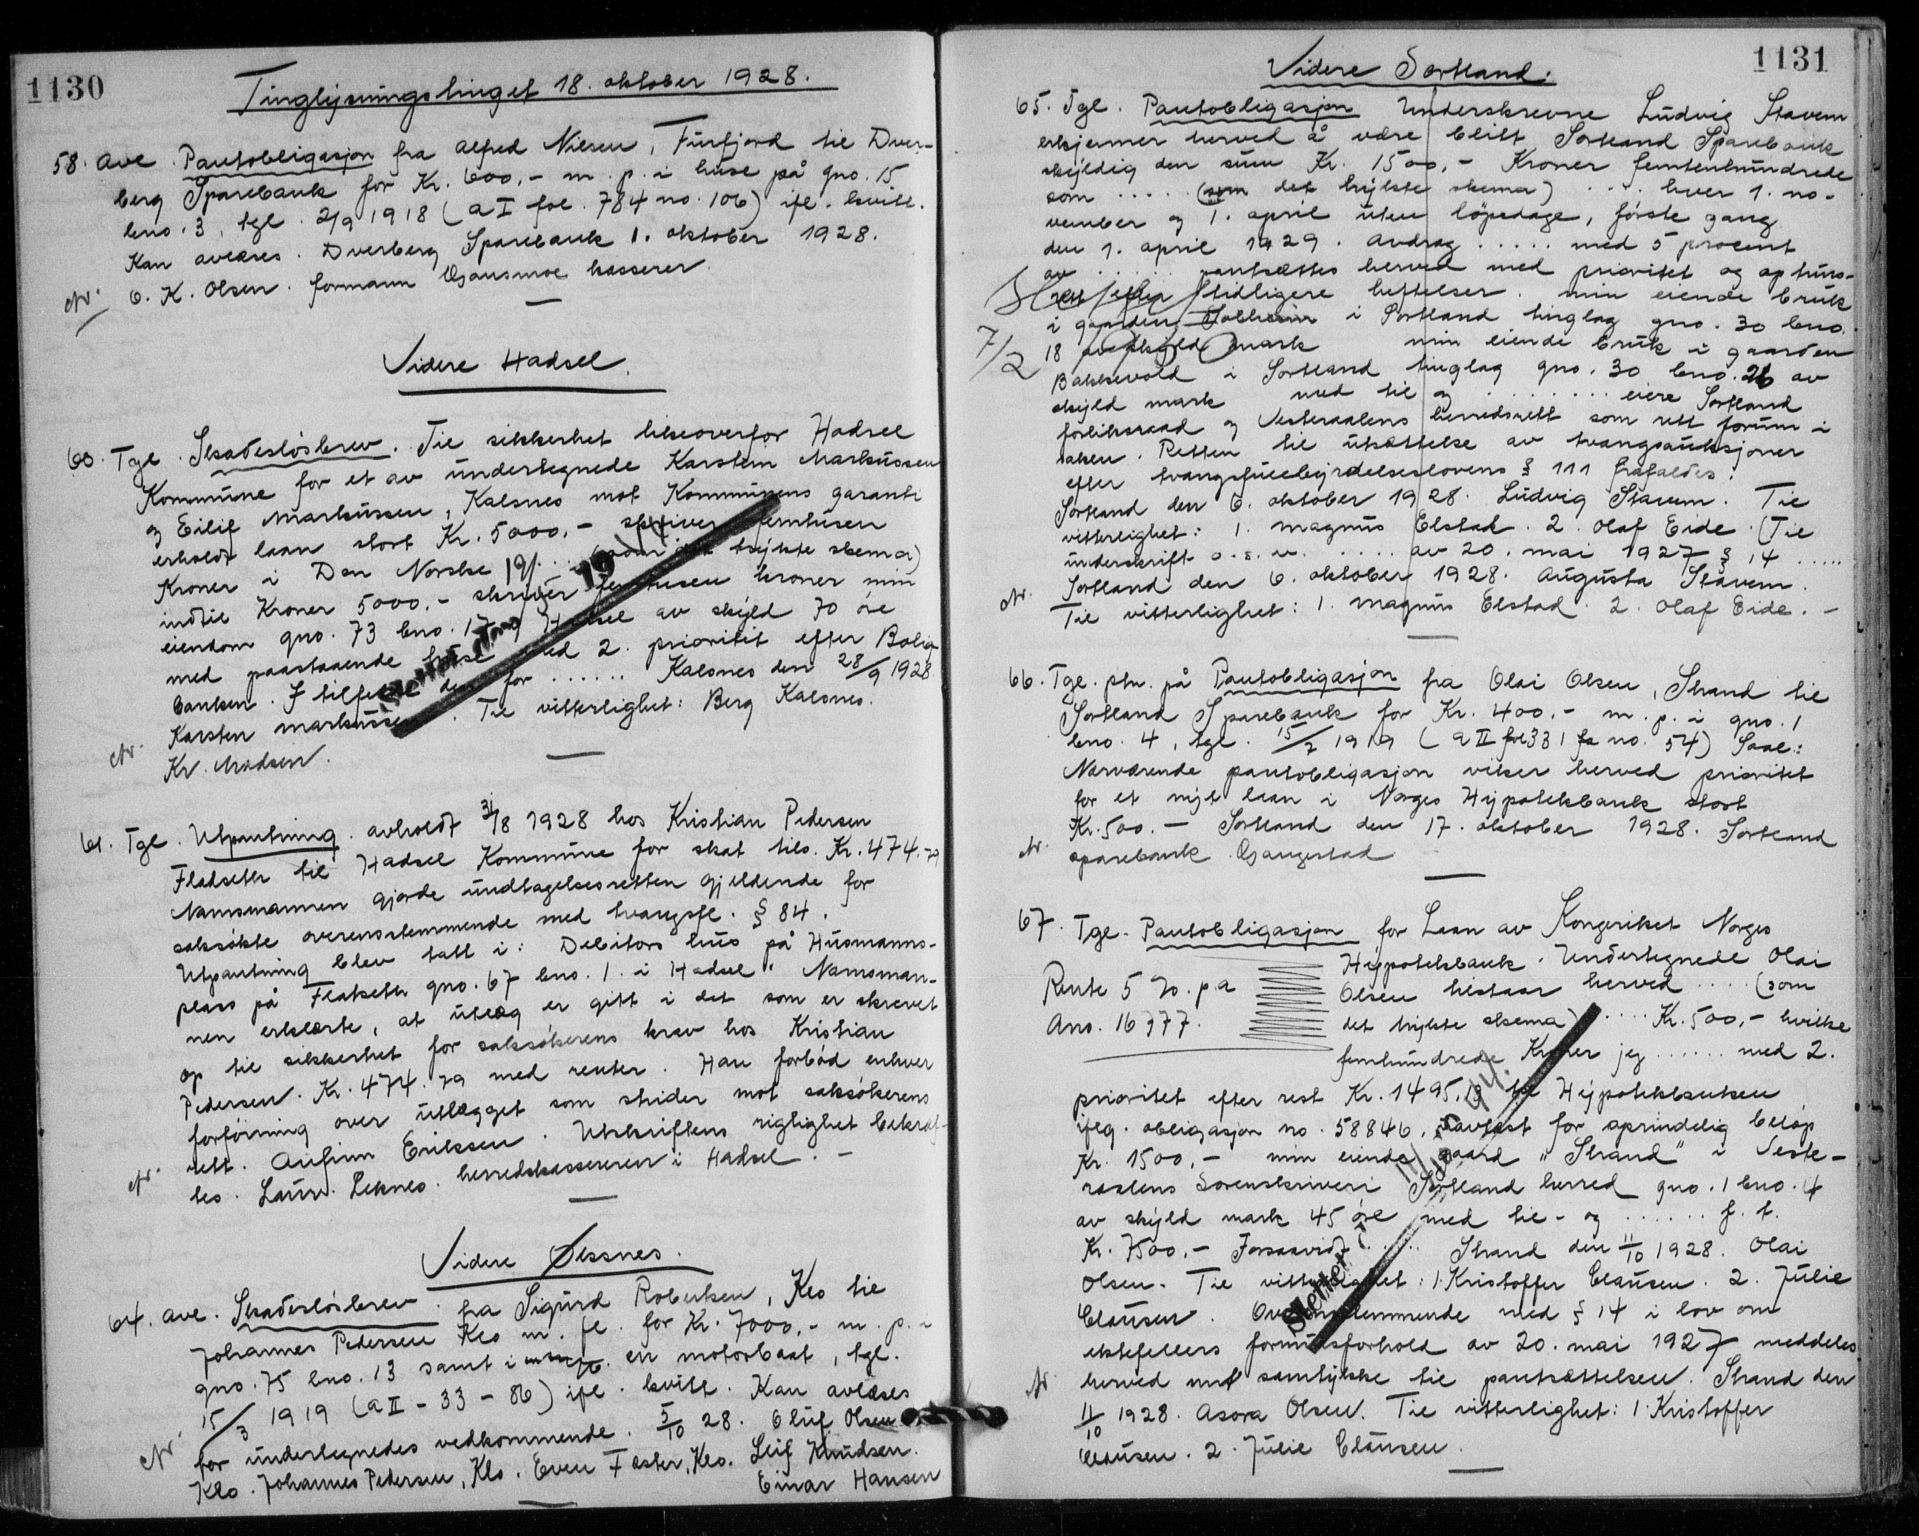 1130
Tinglysningstinget 18. oktober 1928.
58. Avl. Pantobligasjon fra Alfred Nilsen, Furfjord til Dver-
berg Sparebank for Kr. 600,- m. p. i huse på gno. 15
bno. 3, tgl. 2/9 1918 (a I fol. 784 no. 106) ifl. kvitt.
Kan avlæses. Dverberg Sparebank 1. oktober 1928.
O. K. Olsen. formann Gjansmoe kasserer.
Videre Hadsel.
60. Tgl. Skadeslösbrev. Til sikkerhet likeoverfor Hadsel
Kommune for et av undertegnede Karsten Markussen
og Eilif Markussen, Kalsnes mot Kommunens garanti
erholdt laan stort Kr. 5000,- skriver femtusen
Kroner i Den Norske (som det trykte skema)
indtil Kroner 5000.- skriver femtusen kroner min
eiendom gno. 73 bno. 17 i Hadsel av skyld 70 öre
med paastaaende huse med 2. prioritet efter Bolig-
banken. I tilfelle den for ...... Kalsnes den 28/9 1928
Karsten Markussen. Til vitterlighet: Berg Kalsnes.
Kr. Madsen.
61. Tgl. Utpantning avholdt 31/8 1928 hos Kristian Pedersen
Fladseth til Hadsel Kommune for skat tils. Kr. 474.79
Namsmannen gjorde undtagelsesretten gjeldende for
saksökte overensstemmende med tvangsfl. § 84.
Utpantning blev tatt i: Debitors hus på Husmanns-
plass på Flatseth gno. 67 bno. 1. i Hadsel". Namsman-
nen erklærte, at utlæg er gitt i det som er skrevet
op til sikkerhet for saksökerens krav hos Kristian
Pedersen. Kr. 474.79 med renter. Han forböd enhver
forföining over utlægget som strider mot saksökerens
rett. Anfinn Eriksen. Utskriftens riglighet bekræf-
tes. Laur. Leknes. herredskassereren i Hadsel. -
Videre Øksnes.
64. Avl. Skadeslösbrev fra Sigurd Robertsen, Klo til
Johannes Pedersen Klo m. fl. for Kr. 7000,- m. p. i
gno. 75 bno. 13 samt i en motorbaat, tgl.
15/3 1919 (a II - 33 - 86) ifl. kvitt. Kan avlæses
for undertegnedes vedkommende. 5/10 28. Oluf Olsen
Klo. Johannes Pedersen, Klo. Even Fæster, Klo. Leif Knudsen.
Einar Hansen
1131
Videre Sortland.
65. Tgl. Pantobligasjon Underskrevne Ludvig Stavem
erkjenner herved å være blitt Sortland Sparebank
skyldig den sum Kr. 1500,- Kroner femtenhundrede
som .... (som det trykte skema) .... hver 1. no-
vember og 1. april uten löpedage, förste gang
den 1. april 1929. Avdrag ..... med 5 procent
av ...... pantsættes herved med prioritet og optrins-
rett efter tidligere heftelser. min eiende bruk
i gaarden Solheim i Sortland tinglag gno. 30 bno.
18 av skyld mark min eiende bruk i gaarden
7/2
Bakkevold i Sortland tinglag gno. 30 bno. 26 av
skyld mark med til og ........ eiere Sortland
forliksraad og Vesteraalens herredsrett som rett forum i
saken. Retten til utsættelse av tvangsauksjoner
efter tvangsfullbyrdelseslovens § 111 frafaldes.
Sortland den 6. oktober 1928. Ludvig Stavem. Til
vitterlighet: 1. Magnus Elstad. 2. Olaf Eide. (Til
underskrift o. s. v. ..... av 20. mai 1927 § 14 .....
Sortland den 6. oktober 1928. Augusta Stavem.
Til vitterlighet: 1. Magnus Elstad. 2. Olaf Eide. -
66. Tgl. ptn. på Pantobligasjon fra Olai Olsen, Strand til
Sortland Sparebank for Kr. 400.- m. p. i gno. 1
bno. 4, tgl. 15/2 1919 (a II fol 331 no. 54) Saal:
Nærværende pantobligasjon viker herved prioritet
for et nyt laan i Norges Hypotekbank stort
Kr. 500.- Sortland den 17. oktober 1928. Sortland
sparebank. Gjangestad
67. Tgl. Pantobligasjon for Laan av Kongeriket Norges
Hypotekbank. Undertegnede Olai
Rente 5 %. p.a Olsen tilstaar herved .... (som
Ans. 16777. det trykte skema) .... Kr. 500,- hvilke
femhundrede Kroner jeg ...... med 2.
prioritet efter rest Kr. 1495,18 til Hypotekbanken
iflg. obligasjon no. 58846, pavlyst for oprindelig belöp
Kr. 1500,- min eiende gaard "Strand" i Veste-
raalens Sorenskriveri Sortland herred gno. 1 bno. 4
av skyld mark 45 öre med til- og ...... f. t.
Kr. 7500,- Forsaavidt ..... Strand den 11/10 1928. Olai
Olsen. Til vitterlighet: 1. Kristoffer Clausen. 2. Julie
Clausen. Overensstemmende med § 14 i lov om
ektefellers formuesforhold av 20. mai 1927 meddeles
herved mit samtykke til pantsættelsen. Strand den
11/10 1928. Asora Olsen. Til vitterlighet: 1. Kristoffer
Clausen. 2. Julie Clausen.